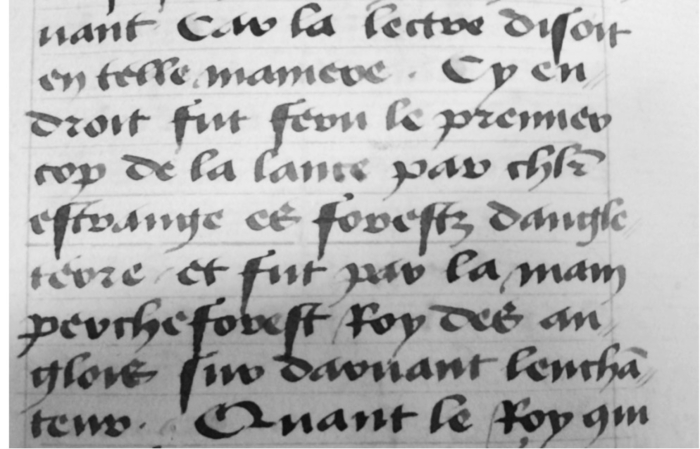 uant Car la lectre disoit
en telle maniere . Cy en//
droit fut feru le premier
cop de la lance par chlr̄
estrange es forestz dangle
terre et fut par la main
percheforest Roy des an//
glois sur daruant lenchā//
teur . Quant le Roy qui